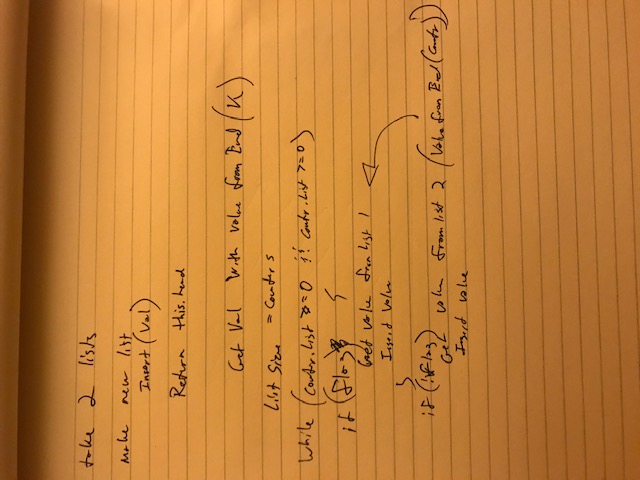 take 2 lists
make new list
Insert (Val)
Return this.head
Get Val with value from End (K)
List size = counters
while (counter.List >= 0 && counter.List >= 0)
if (flag) {
Get value from List 1
Insert value
}
if (!flag)
Get value from list 2 (value from End (counter))
Insert value